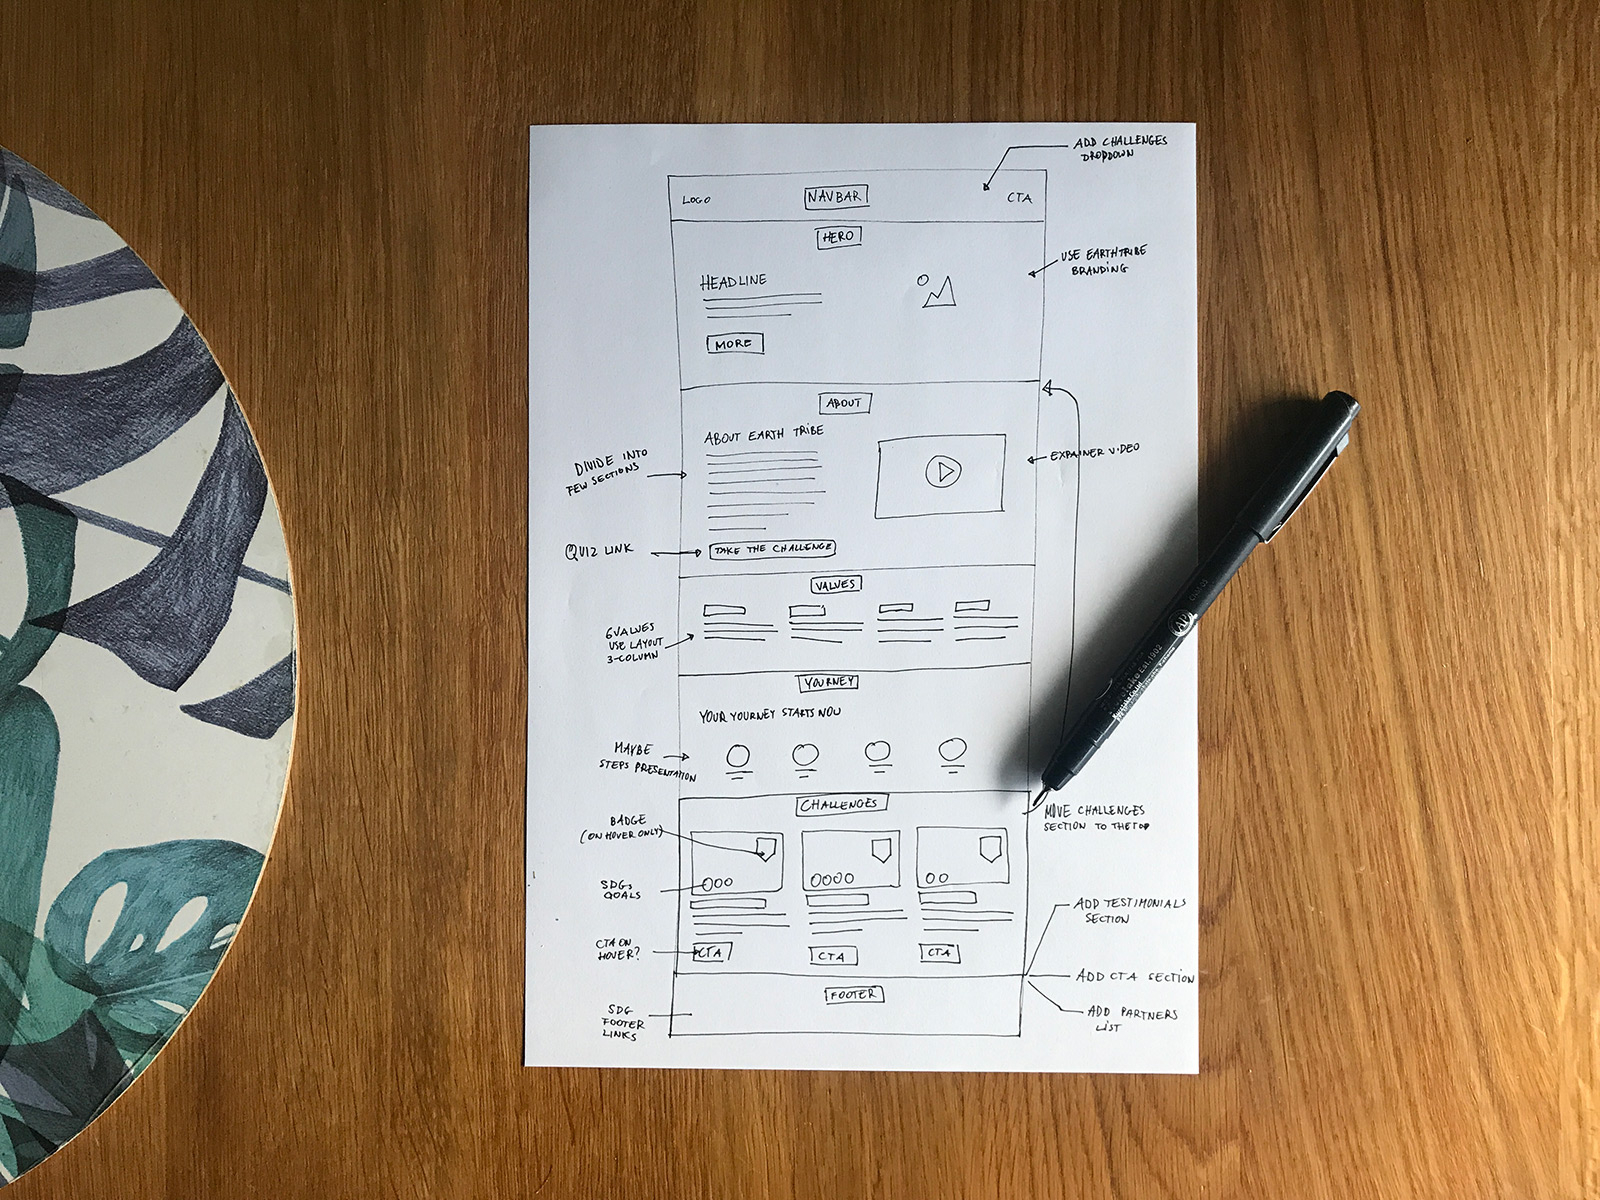 ADD CHALLENGES
DROPDOWN
LOGO
NAVBAR
CTA
HERO
USE EARTHTRIBE
BRANDING
HEADLINE
MORE
ABOUT
ABOUT EARTH TRIBE
DIVIDE INTO
FEW SECTIONS
EXPAINER VIDEO
QUIZ LINK
TAKE THE CHALLENGE
VALUES
6 VALUES
USE LAYOUT
3-COLUMN
YOURNEY
YOUR YOURNEY STARTS NOW
MAYBE
STEPS PRESENTATION
CHALLENGES
MOVE CHALLENGES
SECTION TO THE TOP
BADGE
(ON HOVER ONLY)
SDGs
GOALS
ADD TESTIMONIALS
SECTION
CTA ON
HOVER?
CTA
CTA
CTA
ADD CTA SECTION
FOOTER
SDG
FOOTER
LINKS
ADD PARTNERS
LIST
Est.1902